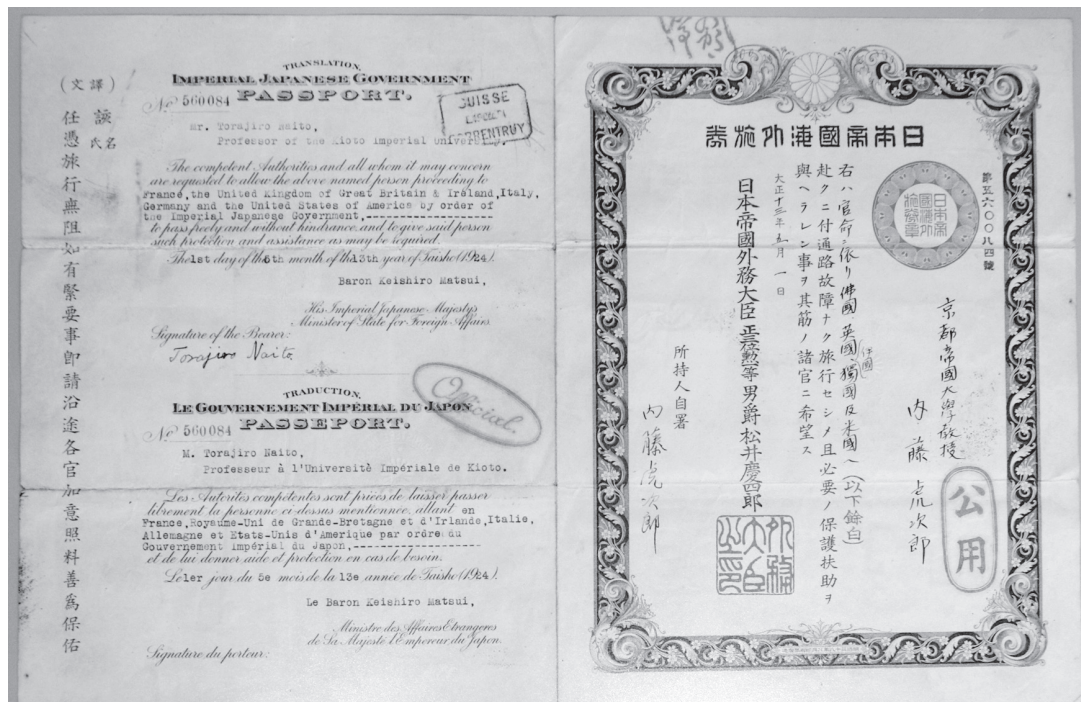 TRANSLATION,
IMPERIAL JAPANESE GOVERNMENT
No 560084 PASSPORT.
SUISSE
PORRENTRUY
Mr. Torajiro Naito,
Professor of the Kioto Imperial University.
The competent Authorities and all whom it may concern
are requested to allow the above named person proceeding to
France, the United Kingdom of Great Britain & Ireland, Italy,
Germany and the United States of America by order of
the Imperial Japanese Government,
to pass freely and without hindrance, and to give said person
such protection and assistance as may be required.
The 1st day of the 5th month of the 13th year of Taisho (1924).
Baron Keishiro Matsui,
His Imperial Japanese Majesty's
Minister of State for Foreign Affairs
Signature of the Bearer:
Torajiro Naito
TRADUCTION,
LE GOUVERNEMENT IMPÉRIAL DU JAPON
No 560084 PASSEPORT.
Official.
M. Torajiro Naito,
Professeur à l'Université Impériale de Kioto.
Les Autorités compétentes sont priées de laisser passer
librement la personne ci-dessus mentionnée, allant en
France, Royaume-Uni de Grande-Bretagne et d'Irlande, Italie,
Allemagne et Etats-Unis d'Amerique par ordre du
Gouvernement Impérial du Japon,
et de lui donner aide et protection en cas de besoin.
Le 1er jour du 5e mois de la 13e année de Taisho (1924).
Le Baron Keishiro Matsui,
Ministre des Affaires Etrangères
de Sa Majesté l'Empereur du Japon.
Signature du porteur:
(譯文)
該氏名
任憑旅行無阻如有緊要事即請沿途各官加意照料善爲保佑
日本帝國海外旅券
第五六〇〇八四號
日本帝國海外旅券章
京都帝國大學教授
内藤虎次郎
公用
右ハ官命ニ依リ佛國、英國、伊國、獨國及米國ヘ(以下餘白)
赴クニ付通路故障ナク旅行セシメ且必要ノ保護扶助ヲ
與ヘラレン事ヲ其筋ノ諸官ニ希望ス
大正十三年五月一日
日本帝國外務大臣正三位勲一等男爵松井慶四郎
外務大臣之印
所持人自署
内藤虎次郎